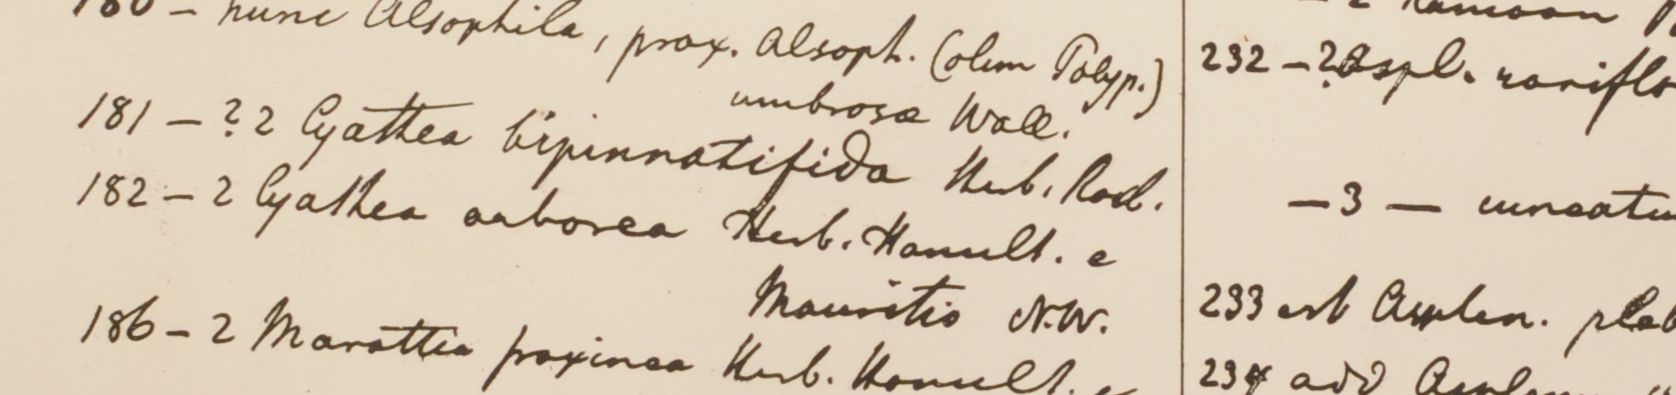 180 – nunc Alsophila, prox. Alsoph. (olim Polyp.)
umbrosa Wall.
181 – ? 2 Cyathea bipinnatifida Herb. Rod.
182 – 2 Cyathea arborea Herb. Hamult. e
Mauritio N.W.
186 – 2 Marattia fraxinea Herb. Hamult. e
– 2
232 – ? Aspl. rariflo
– 3 – cuneatu
233 est Asplen. pla
234 add Asplen.